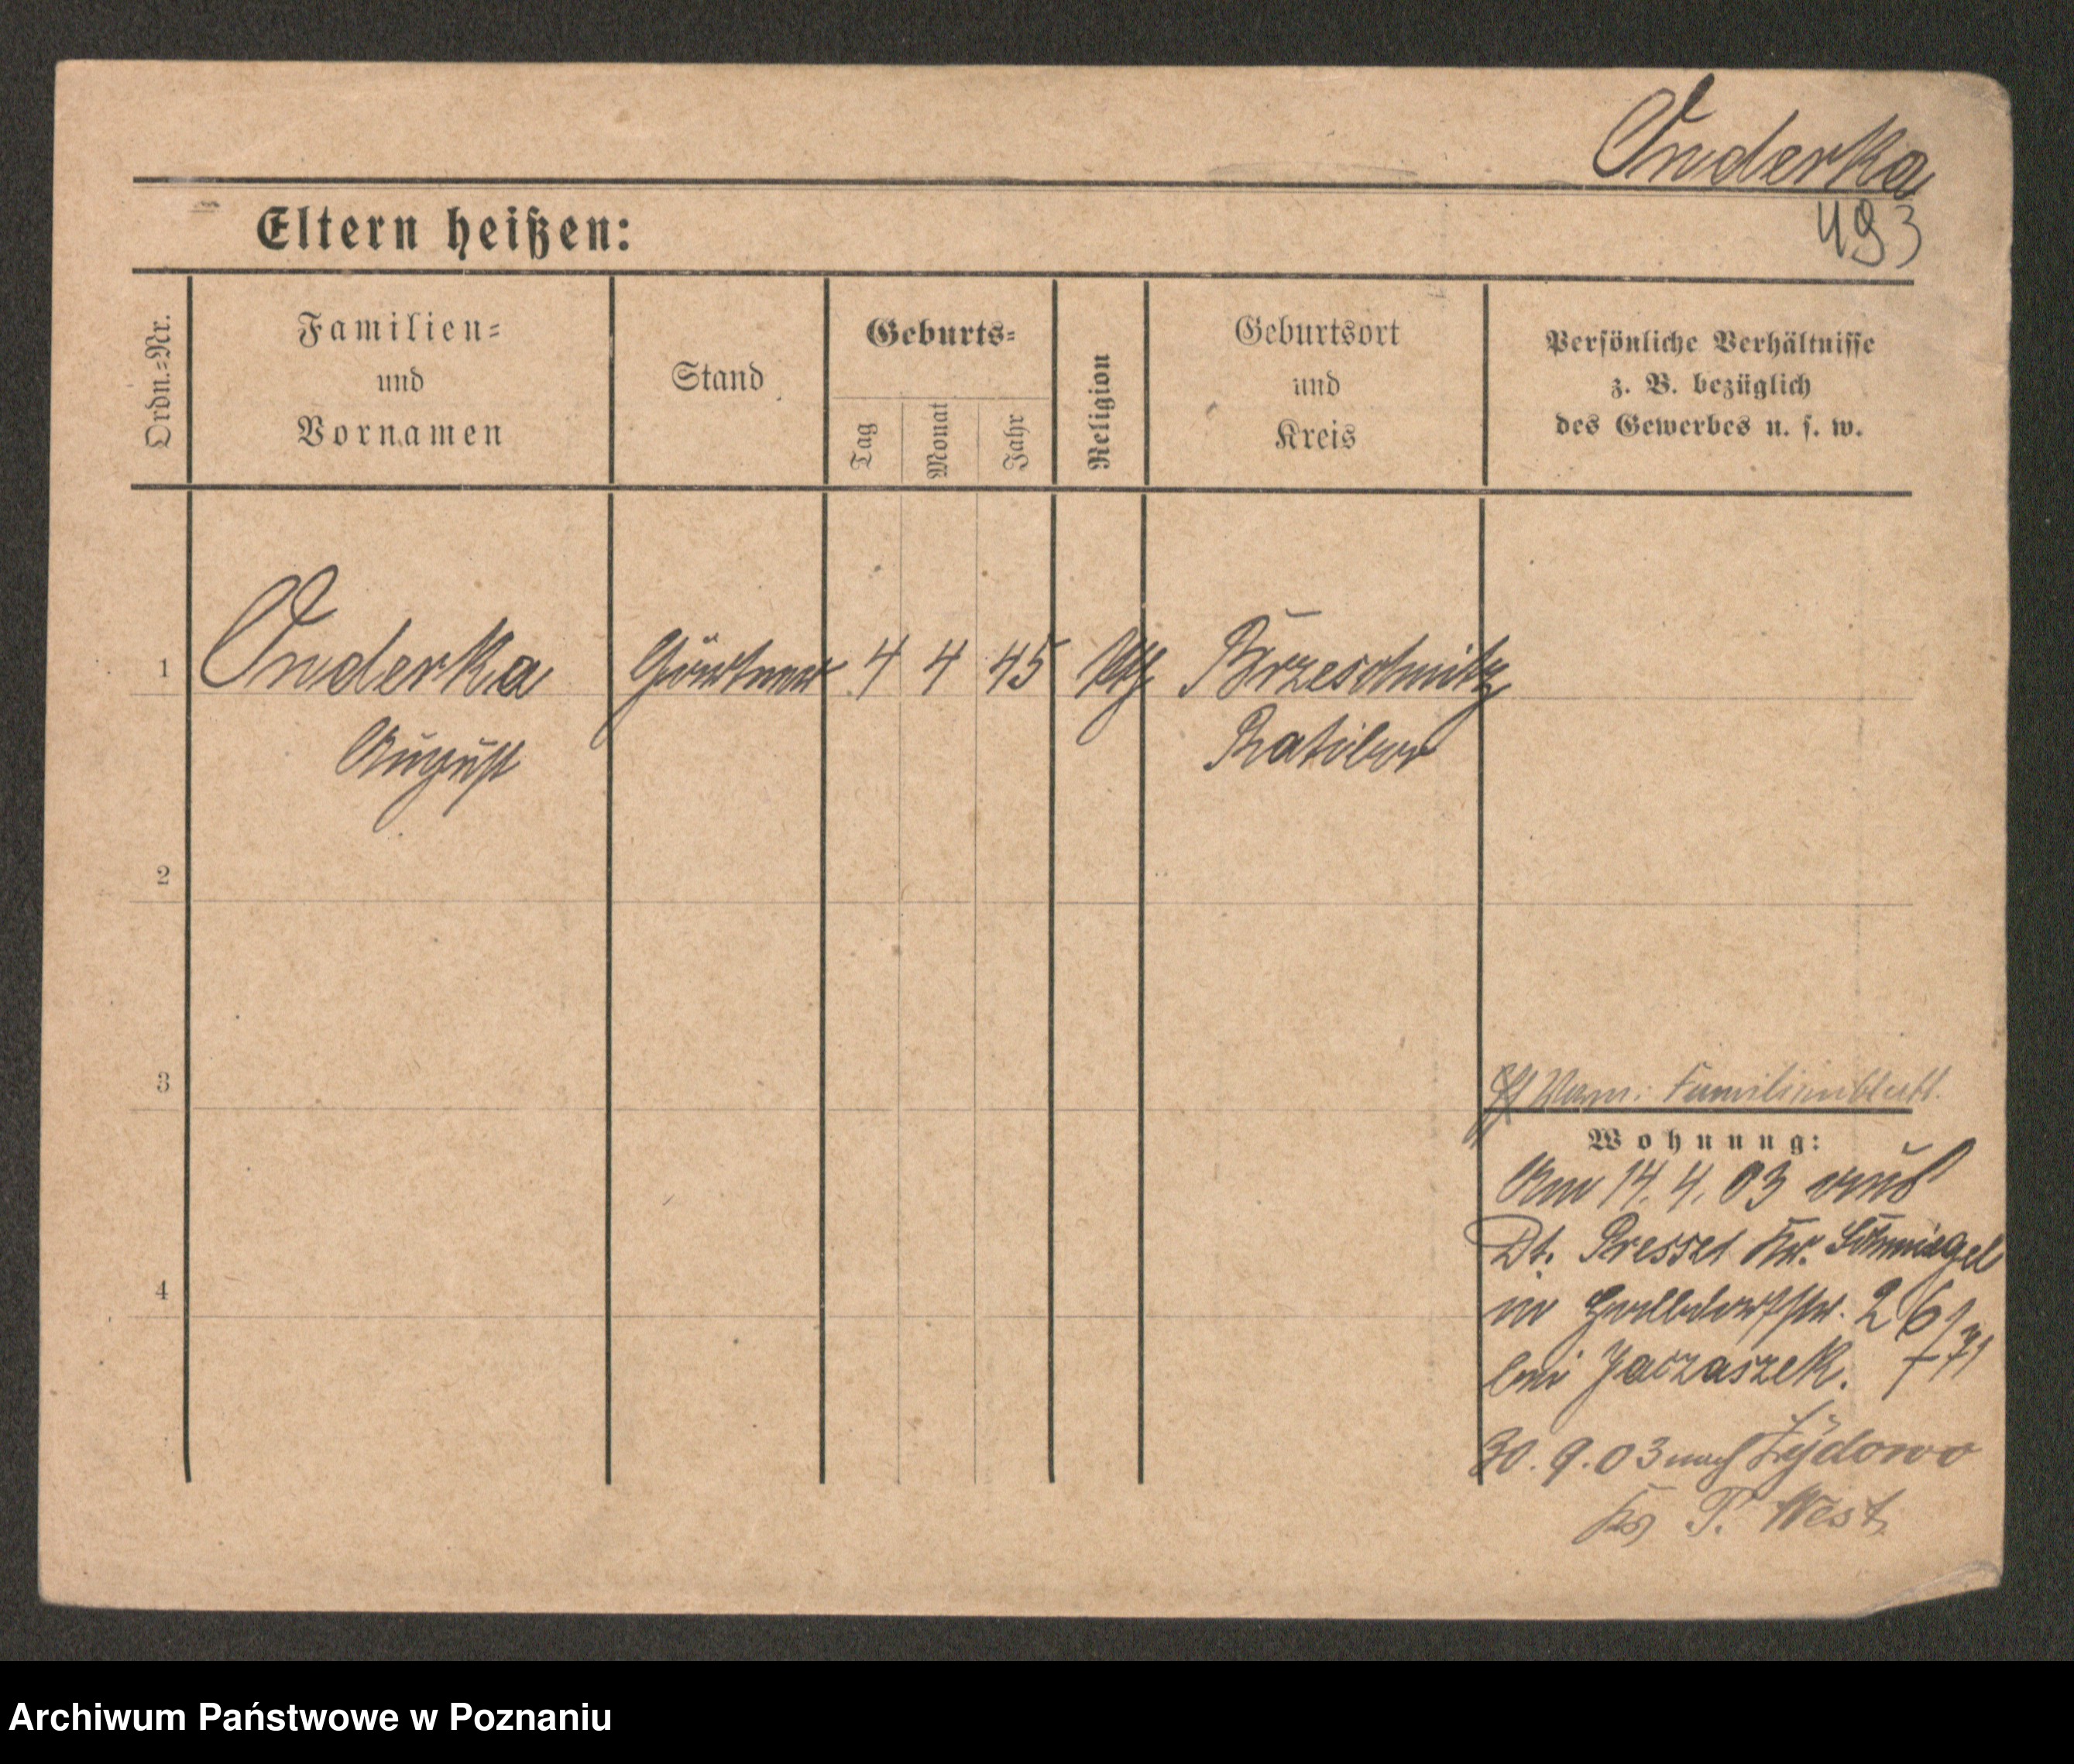 Onderka
493
Eltern heißen:
Ordn.=Nr.
Familien=
und
Vornamen
Stand
Geburts=
Tag
Monat
Jahr
Religion
Geburtsort
und
Kreis
Persönliche Verhältnisse
z. B. bezüglich
des Gewerbes u. s. w.
1
Onderka Gärtner 4 4 45 kth Brzeschnitz
August Ratibor
2
3
Familienblatt.
Wohnung:
Am 14. 4. 03 aus
Dt. Presse Kr. Schmiegel
in 26/
4
bei Jaczaszek. 71
30. 9. 03 nach Zydowo
Kr P. West
Archiwum Państwowe w Poznaniu